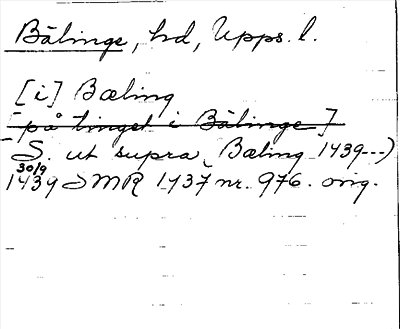 Bälinge, hd, Upps. l.
[i] Bæling
[på tinget i Bälinge]
S. ut supra (Bæling 1439---)
30/9
1439 SMR 1437 nr. 976. orig.